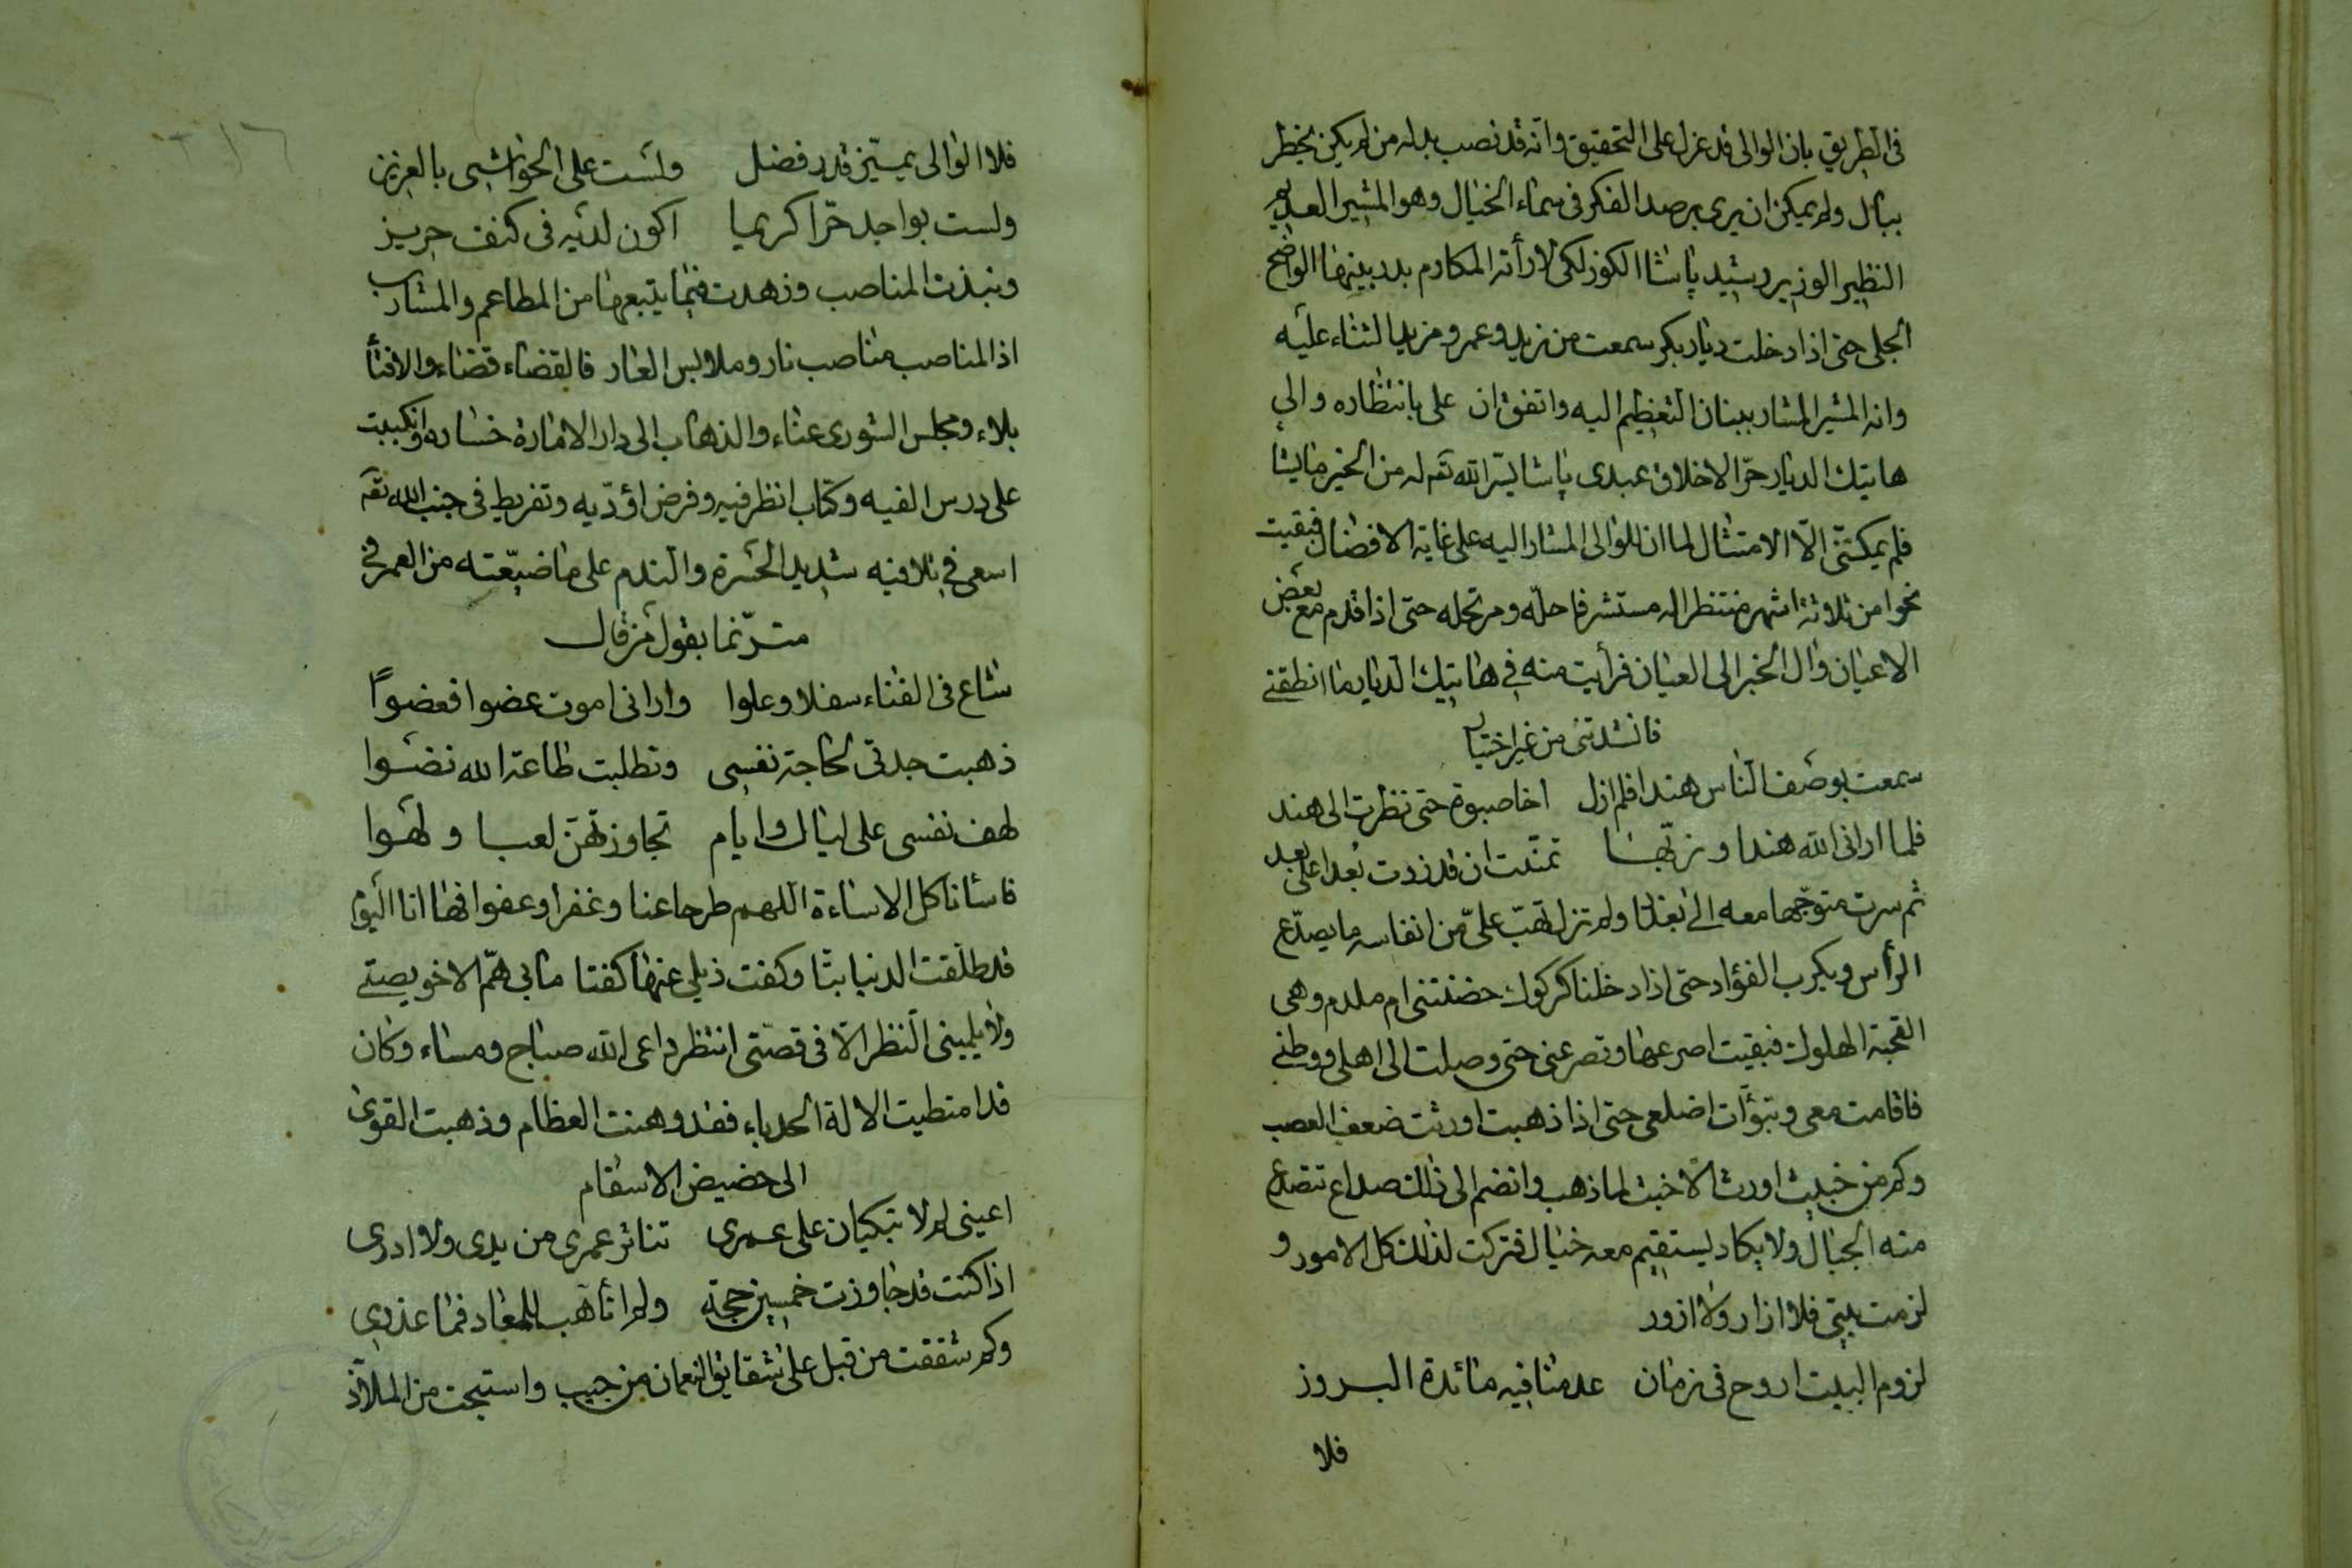 فى الطريق بان الوالى قد عزل على التحقيق وانه قد نصب بدله من لم يكن يخطر
ببال ولم يمكن ان يرى برصد الفكر فى سماء الخيال وهو المشير العديم
النظير الوزير رشيد پاشا الكوزلكى لا رأته المكارم بدر بينها الواضح
الجلى حتى اذا دخلت ديار بكر سمعت من زيد وعمرو مزيد الثناء عليه
وانه المشير المشار ببنان التعظيم اليه واتفق ان على بانتظاره والى
هاتيك الديار حرّ الاخلاق عبدى پاشا يسّر الله تعم له من الخير ما يشا
فلم يمكنّى الّا الامتثال لما ان للوالى المشار اليه على غاية الافضال فبقيت
نحوا من ثلاثة اشهر منتظرا له مستشرفا حلّه ومرتحله حتى اذا قدم مع بعض
الاعيان وآل الخبر الى العيان فرأيت منه فى هاتيك الديار ما انطقنى
فانشدتنى من غير اختيار
سمعت بوصف الناس هندا فلم ازل اخا صبوة حتى نظرت الى هند
فلما ارانى الله هندا وزيّها تمنّيت ان قد زدت بُعدا على بعد
ثم سرت متوجّها معه الى بغداد ولم تزل تهبّ علىّ من انفاسه ما يصدّع
الرأس ويكرب الفؤاد حتى اذا دخلنا كركوك حضنتنى ام ملدم وهى
القحبة الهلوك فبقيت اصرعها وتصرعنى حتى وصلت الى اهلى ووطنى
فاقامت معى وتبوّأت اضلعى حتى اذا ذهبت اورثت ضعف العصب
وكم من خبيث اورث الاخبث لما ذهب وانضم الى ذلك صداع تتصدع
منه الجبال ولا يكاد يستقيم معه خيال فتركت لذلك كل الامور و
لزمت بيتى فلا ازار ولا ازور
لزوم البيت اروح فى زمان عدمنا فيه مائدة البروز
فلا
فلا الوالى يميّز قدر فضل ولست على الحواشى بالعزيز
ولست بواجد حرّا كريما اكون لديه فى كنف حريز
ونبذت المناصب وزهدت فيما يتبعها من المطاعم والمشارب
اذ المناصب مناصب نار وملابس العار فالقضاء قضاء والافتأ
بلاء ومجلس الشورى عناء والذهاب الى دار الامارة خساره وانكببت
على درس الفيه وكتاب انظر فيه وفرض اؤدّيه وتفريط فى جنب الله تعم
اسعى فى تلافيه شديد الحسرة والندم على ما ضيّعته من العمر فى
مترنّما بقول من قال
شاع فى الفناء سفلا وعلوا وارانى اموت عضوا فعضوًا
ذهبت جدتى لحاجة نفسى وتطلبت طاعة الله نضوا
لهف نفسى على ليال وايام تجاوزتهنّ لعبا ولهوا
فاسأنا كل الاساءة اللهم طرحا عنا وغفرا وعفوا فها انا اليوم
قد طلّقت الدنيا بتّا وكفت ذيلى عنها كفتا ما بى همّ الا خويصتى
ولا يلمينى النظر الّا فى قصّتى انتظر داعى الله صباح ومساء وكان
قد امتطيت الآلة الحدباء فقد وهنت العظام وذهبت القوى
الى حضيض الاسقام
اعينى لم لا تبكيان على عمرى تناثر عمرى من يدى ولا ادرى
اذا كنت قد جاوزت خمسين حجة ولم اتأهّب للمعاد فما عذرى
وكم شققت من قبل على شقايق النعمان من جيب واستبحت من الملاذّ